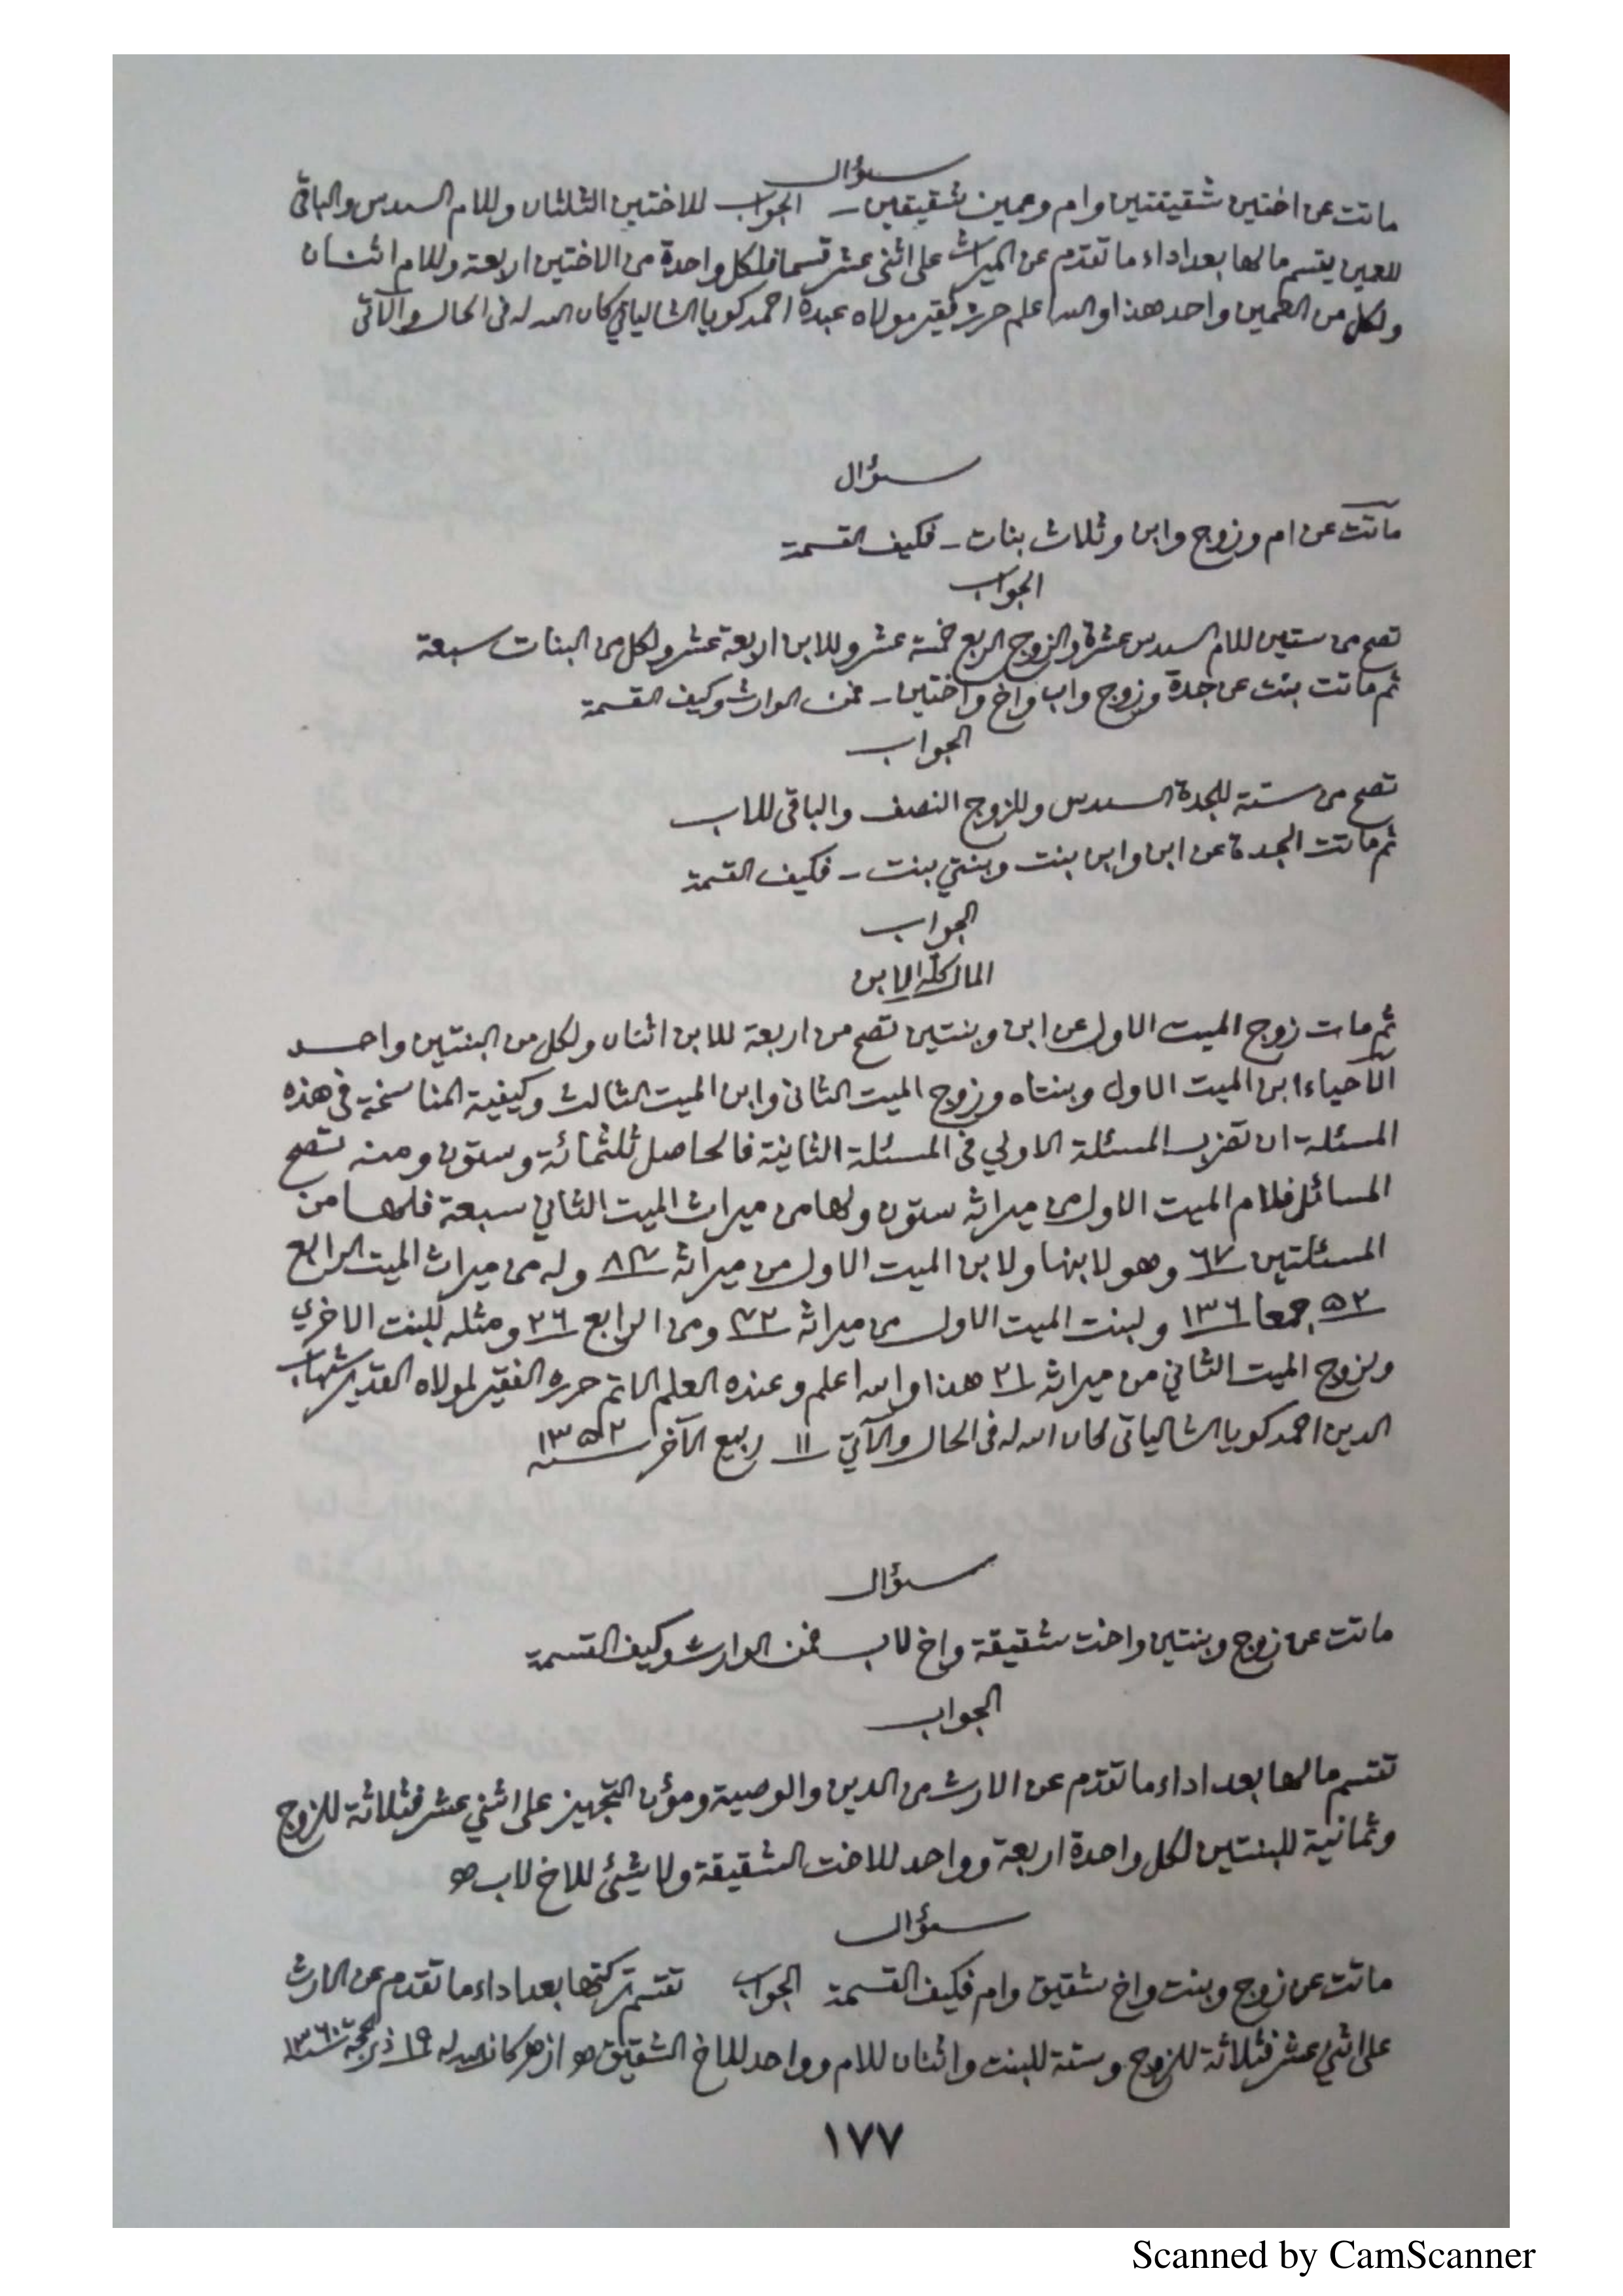 سؤال
ماتت عن اختين شقيقتين وام وعمين شقيقين ــ الجواب للاختين الثلثان وللام السدس والباقي
للعمين يقسم مالها بعد اداء ما تقدم عن الميراث على اثنى عشر قسما فلكل واحدة من الاختين اربعة وللام اثنان
ولكل من العمين واحد هذا والله اعلم حرره فقير مولاه عبده احمد كويا الشالياتي كان الله له فى الحال والآتى
سؤال
ماتت عن ام وزوج وابن وثلاث بنات ــ فكيف القسمة
الجواب
تصح من ستين للام السدس عشرة وللزوج الربع خمسة عشر وللابن اربعة عشر ولكل من البنات سبعة
ثم ماتت بنت عن جدة وزوج واب واخ واختين ــ فمن الوارث وكيف القسمة
الجواب
تصح من ستة للجدة السدس وللزوج النصف والباقى للاب
ثم ماتت الجدة عن ابن وابن بنت وبنتي بنت ــ فكيف القسمة
الجواب
المال كله للابن
ثم مات زوج الميت الاول عن ابن وبنتين تصح من اربعة للابن اثنان ولكل من البنتين واحد
الأحياء ابن الميت الاول وبنتاه وزوج الميت الثانى وابن الميت الثالث وكيفية المناسخة في هذه
المسئلة ان تضرب المسئلة الاولي فى المسئلة الثانية فالحاصل ثلثمائة وستون ومنه تصح
المسائل فلام الميت الاول من ميراثه ستون ولها من ميراث الميت الثاني سبعة فلها من
المسئلتين ٦٧ وهو لابنها ولابن الميت الاول من ميراثه ٨٤ وله من ميراث الميت الرابع
٥٢ جمعا ١٣٦ ولبنت الميت الاول من ميراثه ٤٢ ومن الرابع ٢٦ ومثله للبنت الاخري
ولزوج الميت الثاني من ميراثه ٢١ هذا والله اعلم وعنده العلم الاتم حرره الفقير لمولاه القدير شهاب
الدين احمد كويا الشالياتى كان الله له فى الحال والآتي ١١ ربيع الآخر سنه ١٣٥٢
سؤال
ماتت عن زوج وبنتين واخت شقيقة واخ لاب فمن الوارث وكيف القسمة
الجواب
تقسم مالها بعد اداء ما تقدم عن الارث من الدين والوصية ومؤن التجهيز على اثني عشر فثلاثة للزوج
وثمانية للبنتين لكل واحدة اربعة وواحد للاخت الشقيقة ولا شيئ للاخ لاب
سؤال
ماتت عن زوج وبنت واخ شقيق وام فكيف القسمة الجواب تقسم تركتها بعد اداء ما تقدم عن الارث
على اثني عشر فثلاثة للزوج وستة للبنت واثنان للام وواحد للاخ الشقيق ازهر كان الله له ١٩ ذى الحجة سنة ١٣٦٠
١٧٧
Scanned by CamScanner